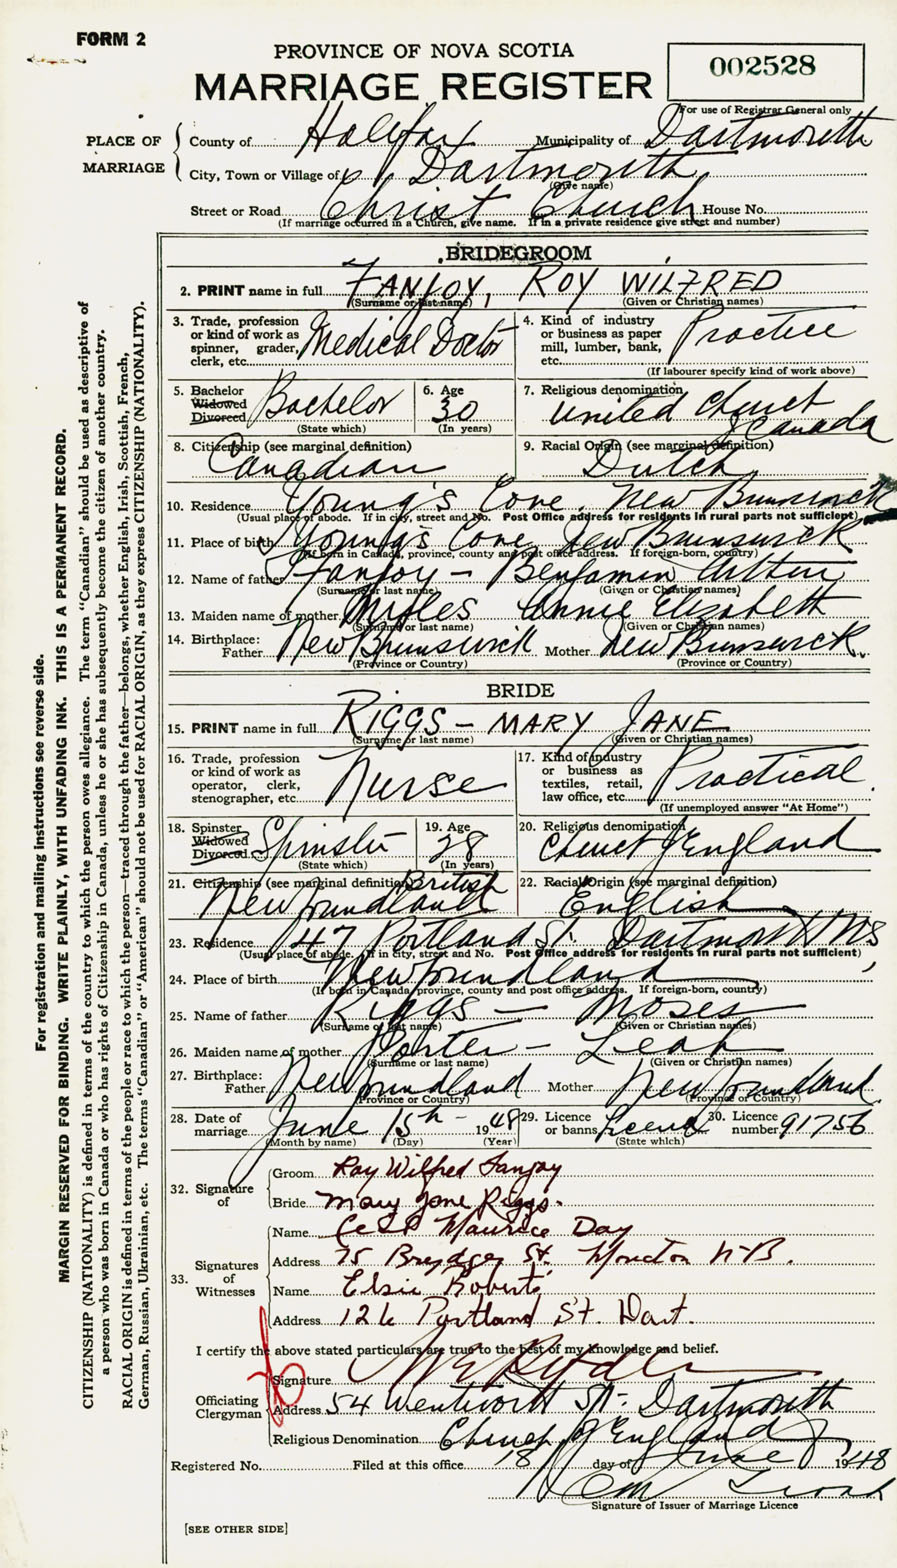 FORM 2
PROVINCE OF NOVA SCOTIA
MARRIAGE REGISTER
002528
For use of Registrar General only
PLACE OF MARRIAGE
County of Halifax Municipality of Dartmouth
City, Town or Village of Dartmouth
(Give name)
Street or Road Christ Church House No.
(If marriage occurred in a Church, give name. If in a private residence give street and number)
BRIDEGROOM
2. PRINT name in full FANJOY, ROY WILFRED
(Surname or last name) (Given or Christian names)
3. Trade, profession or kind of work as spinner, grader, clerk, etc. Medical Doctor
4. Kind of industry or business as paper mill, lumber, bank, etc. Practice
(If labourer specify kind of work above)
5. Bachelor Widowed Divorced Bachelor
(State which)
6. Age 30
(In years)
7. Religious denomination United Church of Canada
8. Citizenship (see marginal definition) Canadian
9. Racial Origin (see marginal definition) Dutch
10. Residence Young's Cove, New Brunswick
(Usual place of abode. If in city, street and No. Post Office address for residents in rural parts not sufficient)
11. Place of birth Young's Cove New Brunswick
(If born in Canada, province, county and post office address. If foreign-born, country)
12. Name of father Fanjoy - Benjamin Arthur
(Surname or last name) (Given or Christian names)
13. Maiden name of mother Annie Elizabeth
(Surname or last name) (Given or Christian names)
14. Birthplace: Father New Brunswick Mother New Brunswick
(Province or Country) (Province or Country)
BRIDE
15. PRINT name in full RIGGS - MARY JANE
(Surname or last name) (Given or Christian names)
16. Trade, profession or kind of work as operator, clerk, stenographer, etc. Nurse
17. Kind of industry or business as textiles, retail, law office, etc. Practical
(If unemployed answer "At Home")
18. Spinster Widowed Divorced Spinster
(State which)
19. Age 28
(In years)
20. Religious denomination Church of England
21. Citizenship (see marginal definition) British
Newfoundland
22. Racial Origin (see marginal definition) English
23. Residence 47 Portland St. Dartmouth NS
(Usual place of abode. If in city, street and No. Post Office address for residents in rural parts not sufficient)
24. Place of birth Newfoundland
(If born in Canada, province, county and post office address. If foreign-born, country)
25. Name of father Riggs - Moses
(Surname or last name) (Given or Christian names)
26. Maiden name of mother Porter - Leah
(Surname or last name) (Given or Christian names)
27. Birthplace: Father Newfoundland Mother Newfoundland
(Province or Country) (Province or Country)
28. Date of marriage June 15th - 1948
(Month by name) (Day) (Year)
29. Licence or banns Licence
(State which)
30. Licence number 91756
32. Signature of
Groom Roy Wilfred Fanjoy
Bride Mary Jane Riggs.
33. Signatures of Witnesses
Name Cecil Maurice Day
Address 75 St. Moncton N-B.
Name Elsie Roberts
Address 126 Portland St. Dart.
I certify the above stated particulars are true to the best of my knowledge and belief.
Officiating Clergyman
Signature
Address 54 Wentworth St- Dartmouth
Religious Denomination Church of England
Registered No. Filed at this office 18 day of June 1948
Signature of Issuer of Marriage Licence
[SEE OTHER SIDE]
For registration and mailing instructions see reverse side.
MARGIN RESERVED FOR BINDING. WRITE PLAINLY, WITH UNFADING INK. THIS IS A PERMANENT RECORD.
CITIZENSHIP (NATIONALITY) is defined in terms of the country to which the person owes allegiance. The term "Canadian" should be used as descriptive of
a person who was born in Canada or who has rights of Citizenship in Canada, unless he or she has subsequently become the citizen of another country.
RACIAL ORIGIN is defined in terms of the people or race to which the person—traced through the father—belongs, whether English, Irish, Scottish, French,
German, Russian, Ukrainian, etc. The terms "Canadian" or "American" should not be used for RACIAL ORIGIN, as they express CITIZENSHIP (NATIONALITY).